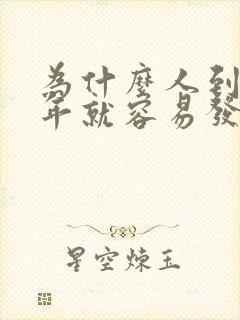 為什麼人到
年就容易發
星空煉玉